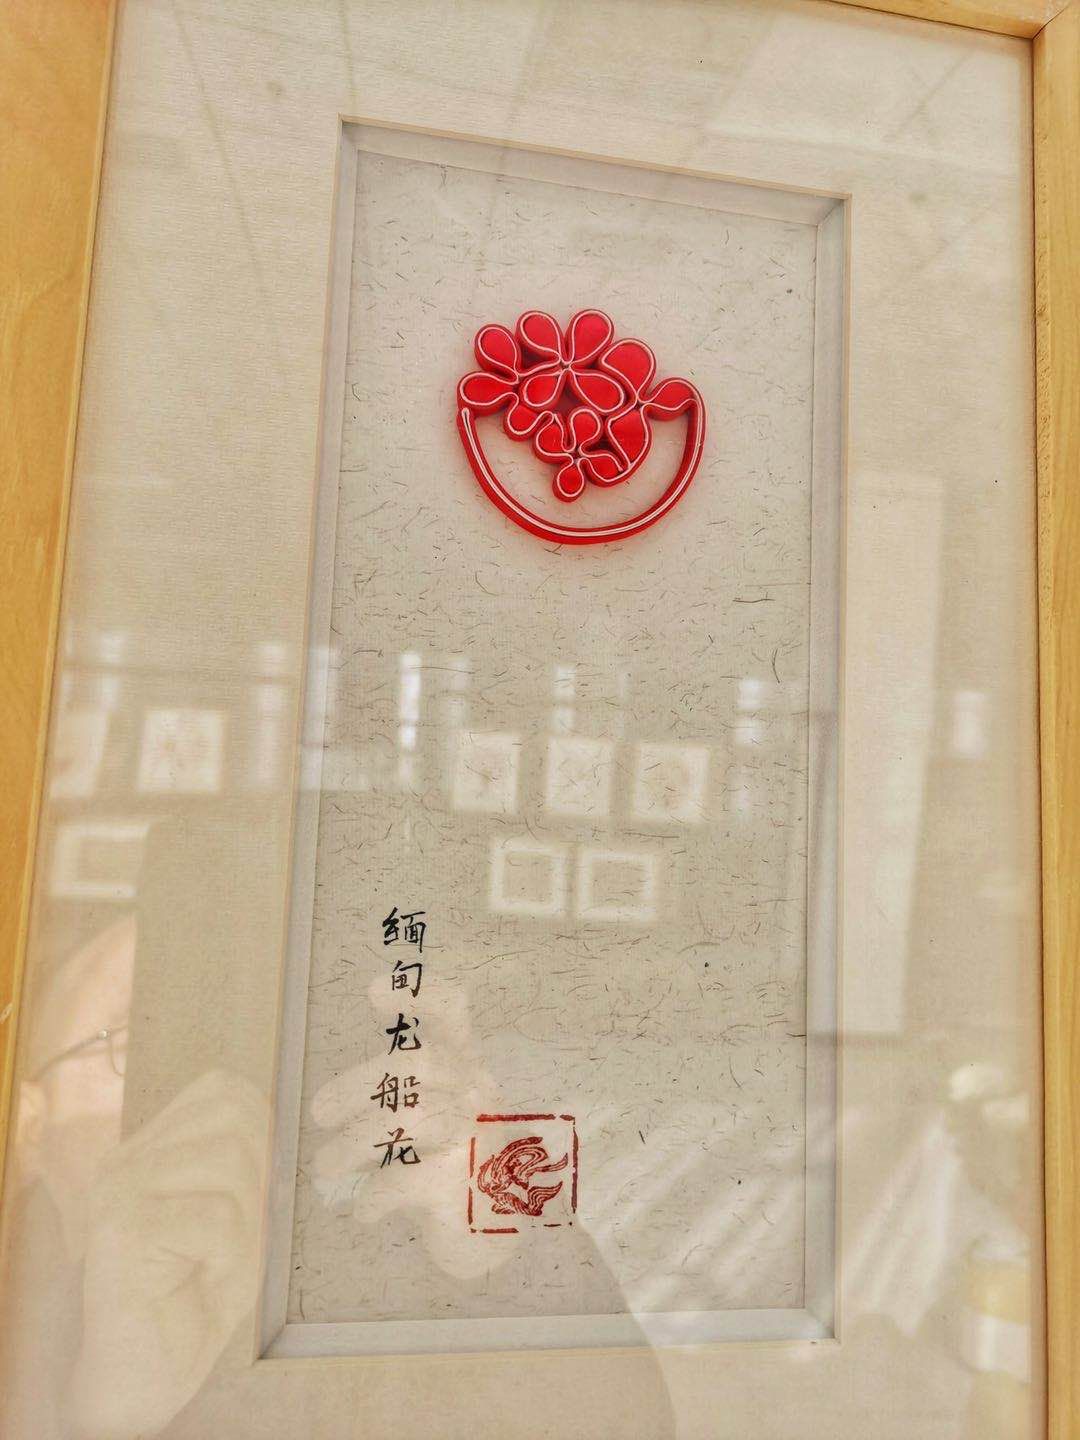 缅甸龙船花